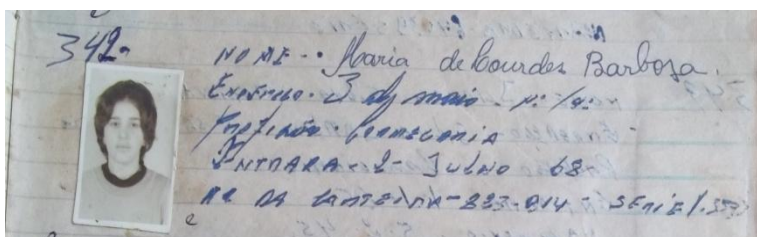 342-
NOME - Maria de Lourdes Barboza.
Endereço. 3 de maio. nº
Profissão
Entrada - 2 - Julho 68
Nº da Carteira - 223-914 - Serie